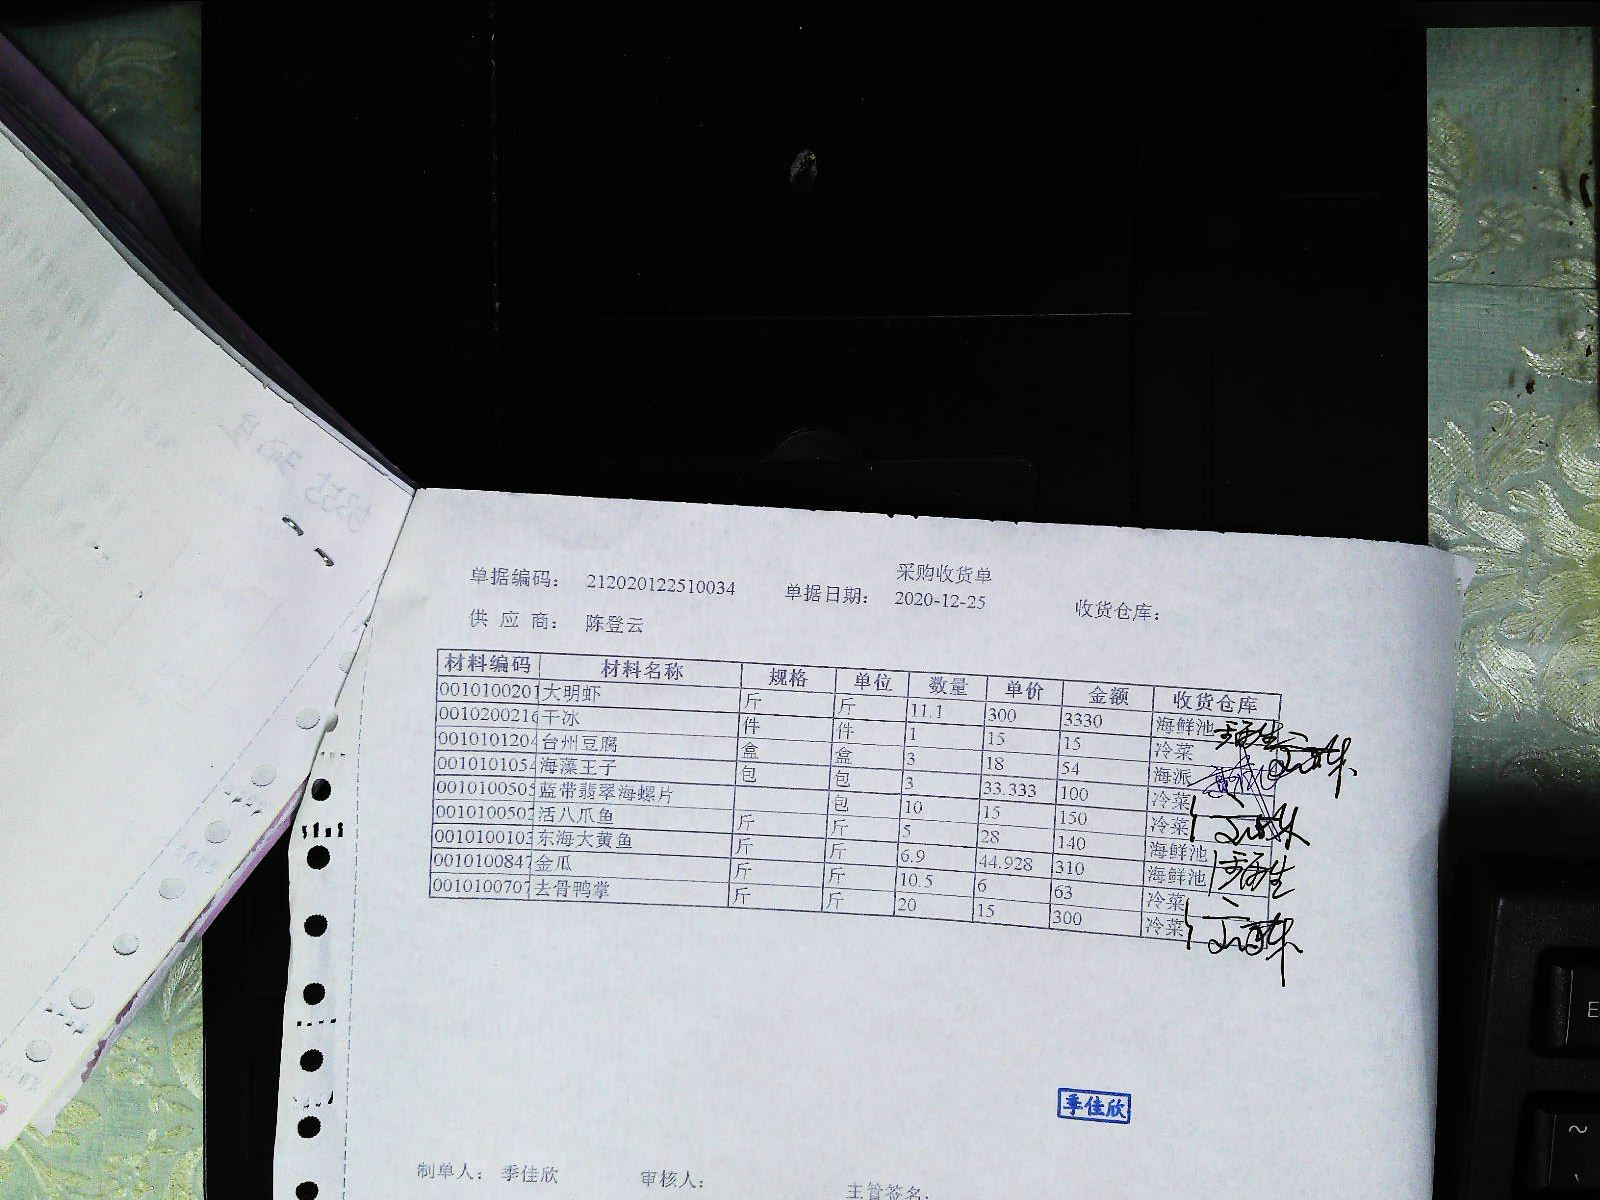 采购收货单
单据编码： 212020122510034 单据日期： 2020-12-25 收货仓库：
供 应 商： 陈登云
材料编码 材料名称 规格 单位 数量 单价 金额 收货仓库
0010100201 大明虾 斤 斤 11.1 300 3330 海鲜池
001020021 干冰 件 件 1 15 15 冷菜
001010120 台州豆腐 盒 盒 3 18 54 海派
001010105 海藻王子 包 包 3 33.333 100 冷菜
001010050 蓝带翡翠海螺片 包 10 15 150 冷菜
001010050 活八爪鱼 斤 斤 5 28 140 海鲜池
001010010 东海大黄鱼 斤 斤 6.9 44.928 310 海鲜池
001010084 金瓜 斤 斤 10.5 6 63 冷菜
001010070 去骨鸭掌 斤 斤 20 15 300 冷菜
季佳欣
制单人： 季佳欣 审核人： 主管签名：